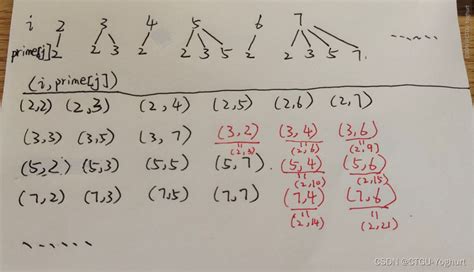 i 2 3 4 5 6 7 ......
prime[j] 2 2 3 2 2 3 5 2 2 3 5 7.
(i, prime[j])
(2,2) (2,3) (2,4) (2,5) (2,6) (2,7)
(3,3) (3,5) (3,7) (3,2) (3,4) (3,6)
(2,3) (2,6) (2,9)
(5,2) (5,3) (5,5) (5,7). (5,4) (5,6)
(2,10) (2,15)
(7,2) (7,3) (7,5) (7,7) (7,4) (7,6)
(2,14) (2,21)
......
CSDN @CTGU-Yoghurt